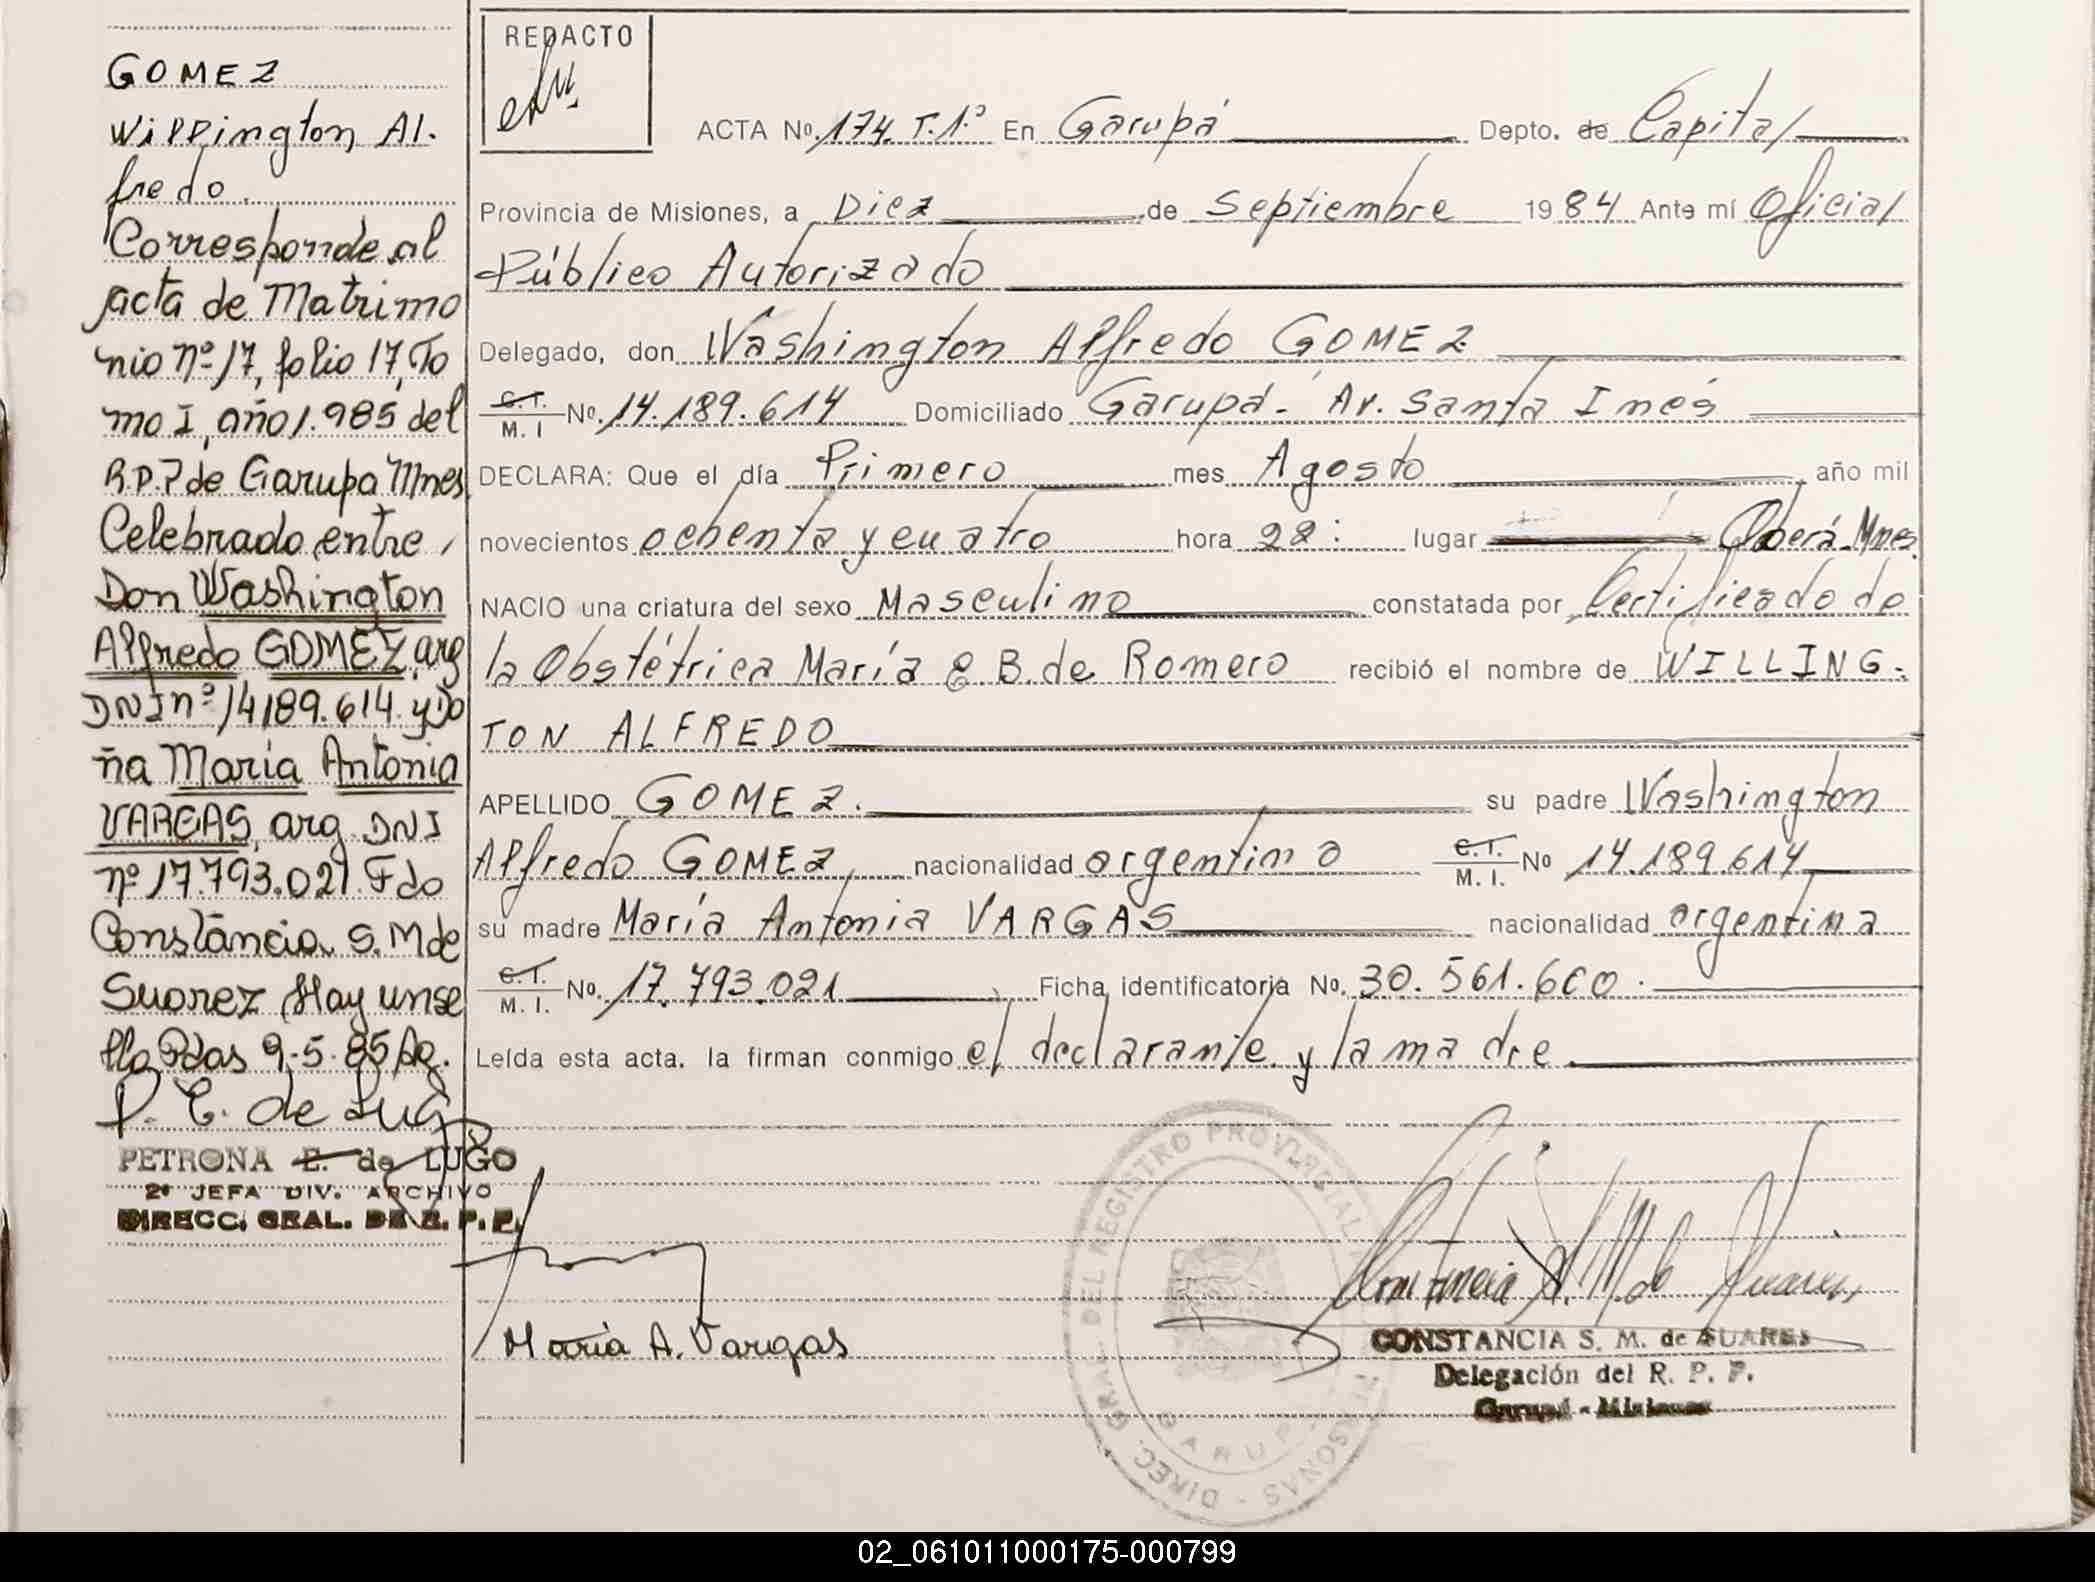 GOMEZ
Willington Al.
fredo.
Corresponde al
acta de Matrimo
nio Nº 17, folio 17, To
mo I, año 1.985 del
R.P.P de Garupa Mnes
Celebrado entre,
Don Washington
Alfredo GOMEZ, arg
DNI nº 14189.614 y Do
ña Maria Antonia
VARGAS, arg DNI
nº 17.793.021. Fdo
Constancia S. M de
Suarez Hay un se
llo Pdas 9-5-85
P. E. de Lugo
PETRONA E. de LUGO
2º JEFA DIV. ARCHIVO
DIRECC. GRAL. DE R. P. P.
REDACTO
ACTA Nº. 174 T.1.º En Garupá Depto. de Capital
Provincia de Misiones, a Diez de Septiembre 1984 Ante mí Oficial
Público Autorizado
Delegado, don Washington Alfredo GOMEZ
C.I. M. I Nº. 14.189.614 Domiciliado Garupá - Av. Santa Inés
DECLARA: Que el día Primero mes Agosto, año mil
novecientos ochenta y cuatro hora 22: lugar Oberá. Mnes.
NACIO una criatura del sexo Masculino constatada por Certificado de
la Obstétrica María E. B. de Romero recibió el nombre de WILLING-
TON ALFREDO
APELLIDO GOMEZ. su padre Washington
Alfredo GOMEZ, nacionalidad argentina C.I. M. I. Nº 14.189.614
su madre María Antonia VARGAS nacionalidad argentina
C.I. M. I. Nº. 17.793.021 Ficha identificatoria No. 30.561.600.
Leída esta acta. la firman conmigo el declarante y la madre.
María A. Vargas
DIREC. GRAL. DEL REGISTRO PROVINCIAL PERSONAS - GARUPA
Constancia S. M. de Suares
CONSTANCIA S. M. de SUARES
Delegación del R. P. P.
Garupá - Misiones
02_061011000175-000799